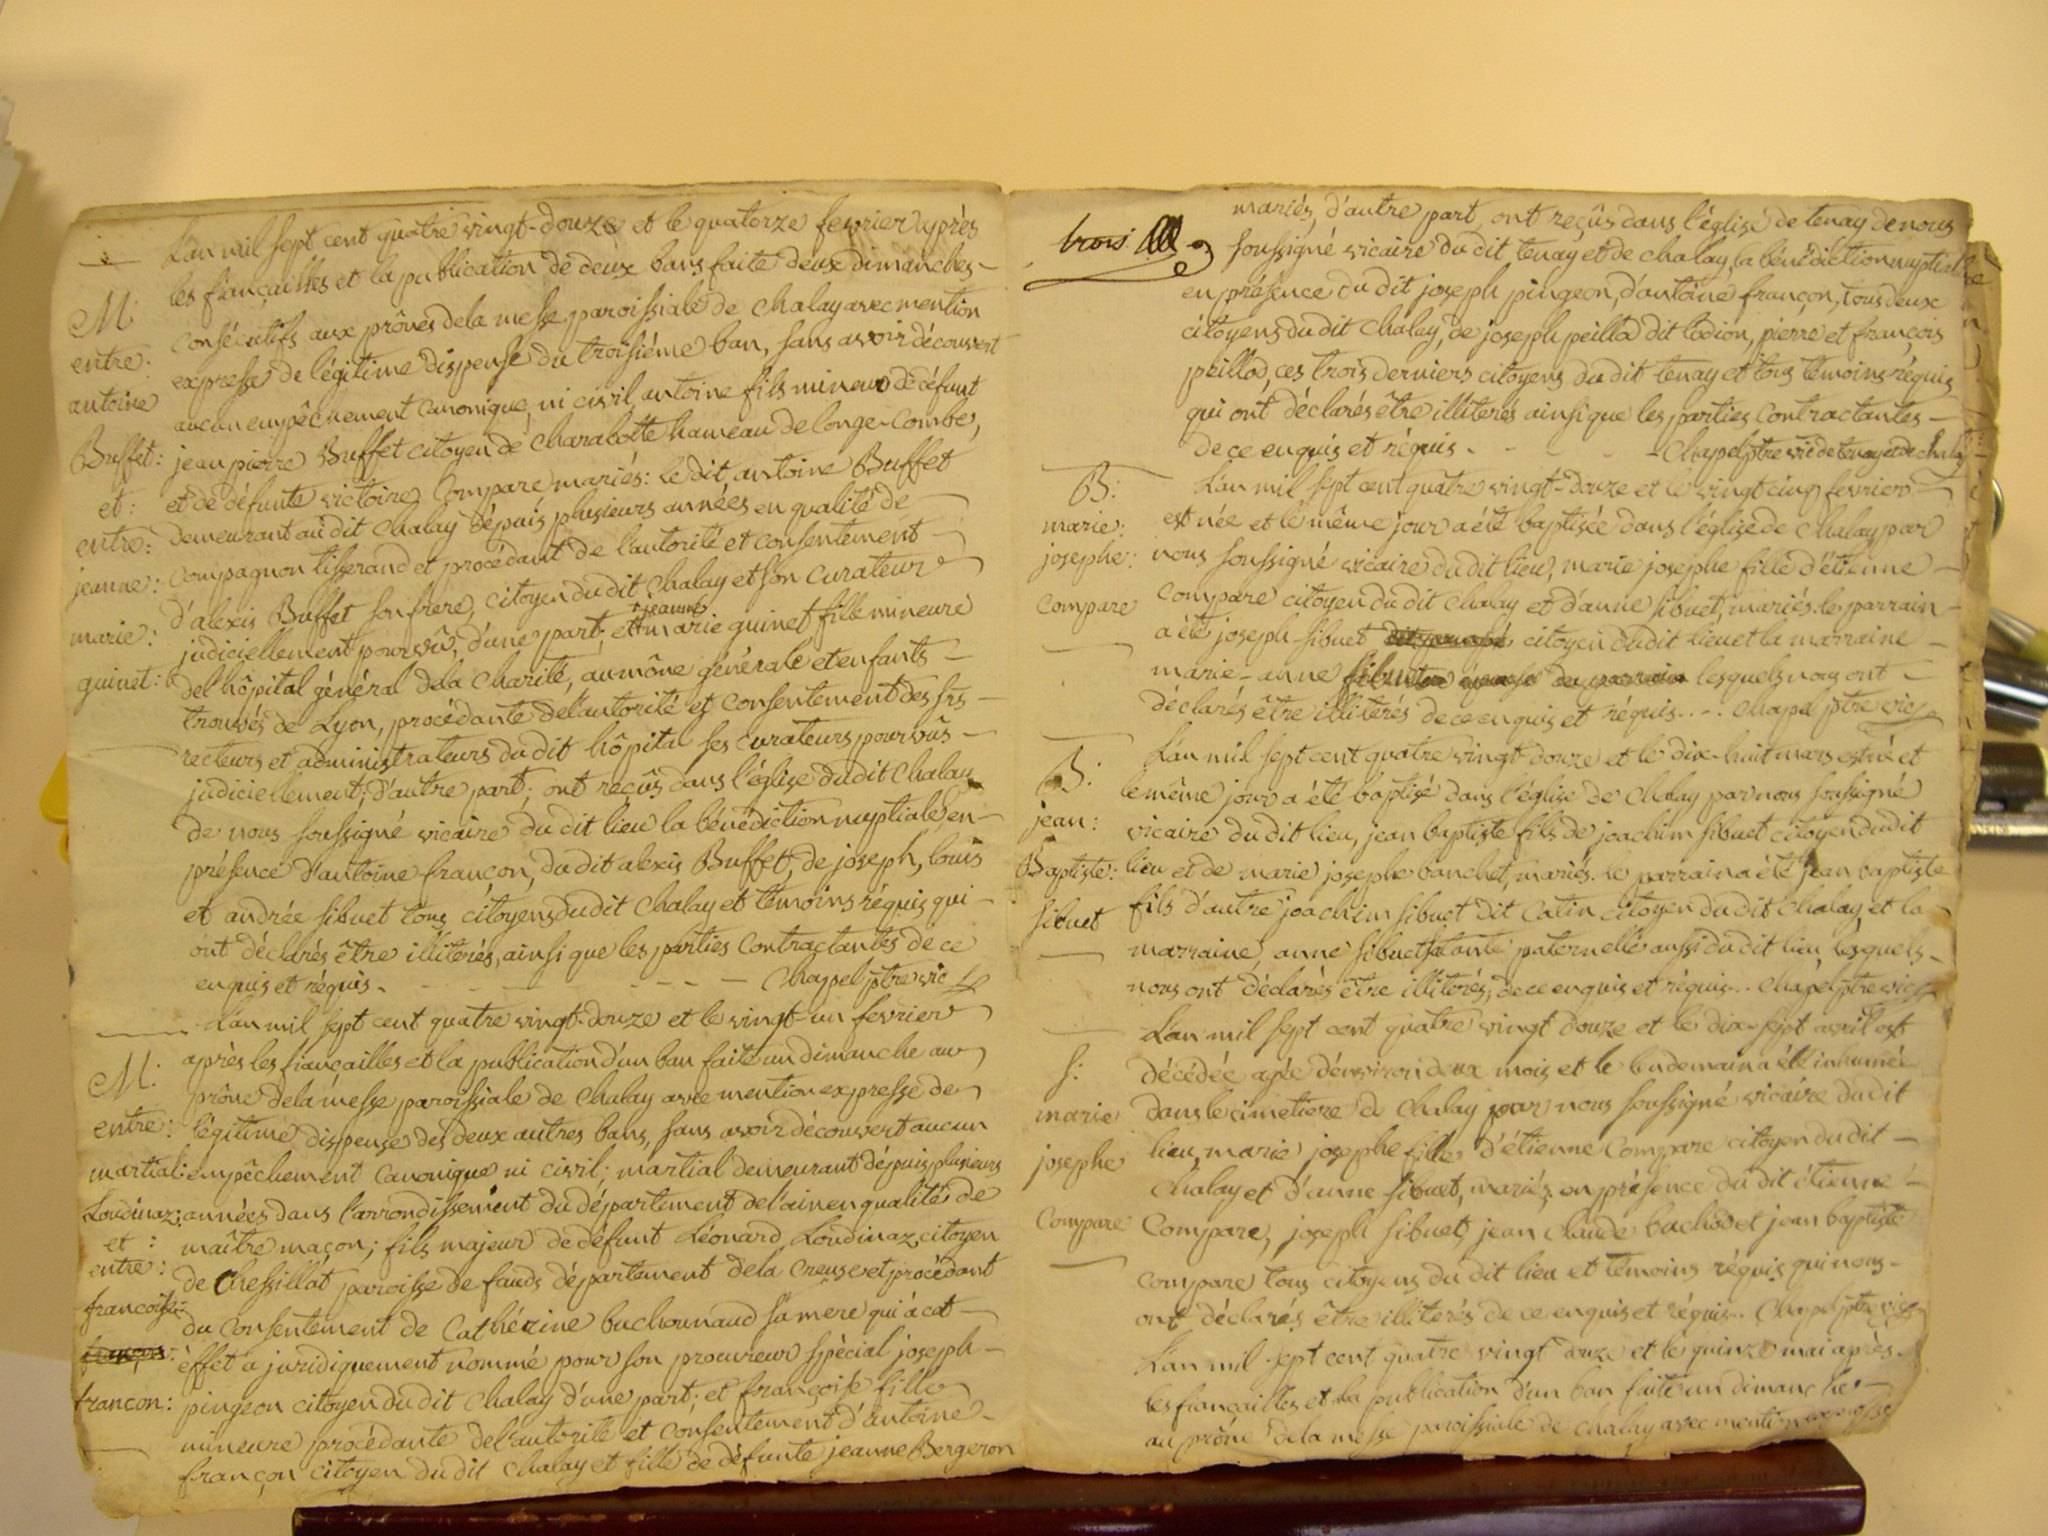 L'an mil sept cent quatre vingt-douze et le quatorze fevrier après
les fiançailles et la publication de deux bans faite deux dimanches
M: consécutifs aux prônes de la messe paroissiale de Chalay avec mention
entre: expresse de légitime dispense du troisième ban, sans avoir découvert
antoine aucun empêchement canonique, ni civil, antoine fils mineur de défunt
Buffet: jean pierre Buffet citoyen de Charabotte hameau de longe-combe,
et: et de défunte victoire Compare mariés: le dit antoine Buffet
entre: demeurant au dit Chalay dépuis plusieurs années en qualité de
jeanne: compagnon tisserand et procédant de l'autorité et consentement
d'alexis Buffet son frere, citoyen du dit Chalay et son curateur
jeanne
marie: judiciellement pourvû, d'une part; et marie guinet fille mineure
guinet: de l'hôpital général de la Charité, aumône générale et enfants
trouvés de Lyon, procédante de l'autorité et consentement des srs
recteurs et administrateurs du dit hôpital ses curateurs pourvûs
judiciellement; d'autre part; ont reçûs dans l'église du dit Chalay
de nous soussigné vicaire du dit lieu la bénédiction nuptiale, en
présence d'antoine françon, du dit alexis Buffet, de joseph, louis
et andrée sibuet tous citoyens du dit Chalay et témoins réquis qui
ont déclarés être illiterés, ainsi que les parties contractantes de ce
enquis et réquis. - - - - - - Chapel ptre vic
L'an mil sept cent quatre vingt-douze et le vingt-un fevrier
après les fiançailles et la publication d'un ban faite un dimanche au
M: prône de la messe paroissiale de Chalay avec mention expresse de
entre: légitime dispense des deux autres bans, sans avoir découvert aucun
martial: empêchement canonique ni civil; martial demeurant dépuis plusieurs
Loudinaz: années dans l'arrondissement du département de l'ain en qualités de
et: maître maçon; fils majeur de défunt Léonard Loudinaz citoyen
entre: de Chessillat paroisse de fauds département de la Creuse et procédant
françoise: du consentement de Cathérine buchounaud sa mere qui à cet
éffet a juridiquement nommé pour son procureur spécial joseph
françon: pingeon citoyen du dit Chalay d'une part; et françoise fille
mineure procédante de l'autorité et consentement d'antoine
françon citoyen du dit Chalay et fille de défunte jeanne Bergeron
trois
mariés, d'autre part, ont reçûs dans l'église de tenay de nous
soussigné vicaire du dit tenay et de chalay, la bénédiction nuptiale
en présence du dit joseph pingeon, d'antoine françon, tous deux
citoyens du dit Chalay, de joseph peillod dit pierre et françois
peillod, ces trois derniers citoyens du dit tenay et tous témoins réquis
qui ont déclarés être illiterés ainsi que les parties contractantes
de ce enquis et réquis. - - - Chapel ptre vic de tenay et de chalay
B: L'an mil sept cent quatre vingt-douze et le vingt cinq fevrier
marie: est née et le même jour a été baptisée dans l'église de Chalay par
josephe: nous soussigné vicaire du dit lieu, marie josephe fille d'étienne
Compare Compare citoyen du dit Chalay et d'anne sibuet, mariés. le parrain
a été joseph sibuet citoyen du dit lieu et la marraine
marie-anne lesquels nous ont
déclarés être illiterés de ce enquis et réquis. . - . Chapel ptre vic
L'an mil sept cent quatre vingt douze et le dix-huit mars est né et
B: le même jour a été baptisé dans l'église de Chalay par nous soussigné
jean: vicaire du dit lieu, jean baptiste fils de joachim sibuet citoyen du dit
Baptiste: lieu et de marie josephe banchet, mariés. le parrain a été jean baptiste
sibuet fils d'autre joachim sibuet dit Catin citoyen du dit Chalay et la
marraine anne sibuet sa tante paternelle aussi du dit lieu, lesquels
nous ont déclarés être illiterés, de ce enquis et réquis. . Chapel ptre vic
L'an mil sept cent quatre vingt douze et le dix-sept avril est
s: décédée agée d'environ deux mois et le lendemain a été inhumée
marie dans le cimetiere de Chalay par nous soussigné vicaire du dit
josephe lieu, marie josephe fille d'étienne Compare citoyen du dit
Chalay et d'anne sibuet, mariés, en présence du dit étienne
Compare Compare, joseph sibuet, jean claude bachod et jean baptiste
compare tous citoyens du dit lieu et témoins réquis qui nous
ont déclarés être illiterés de ce enquis et réquis. . Chapel ptre vic
L'an mil sept cent quatre vingt douze et le quinze mai après
les fiançailles et la publication d'un ban faite un dimanche
au prône de la messe paroissiale de chalay avec mention expresse